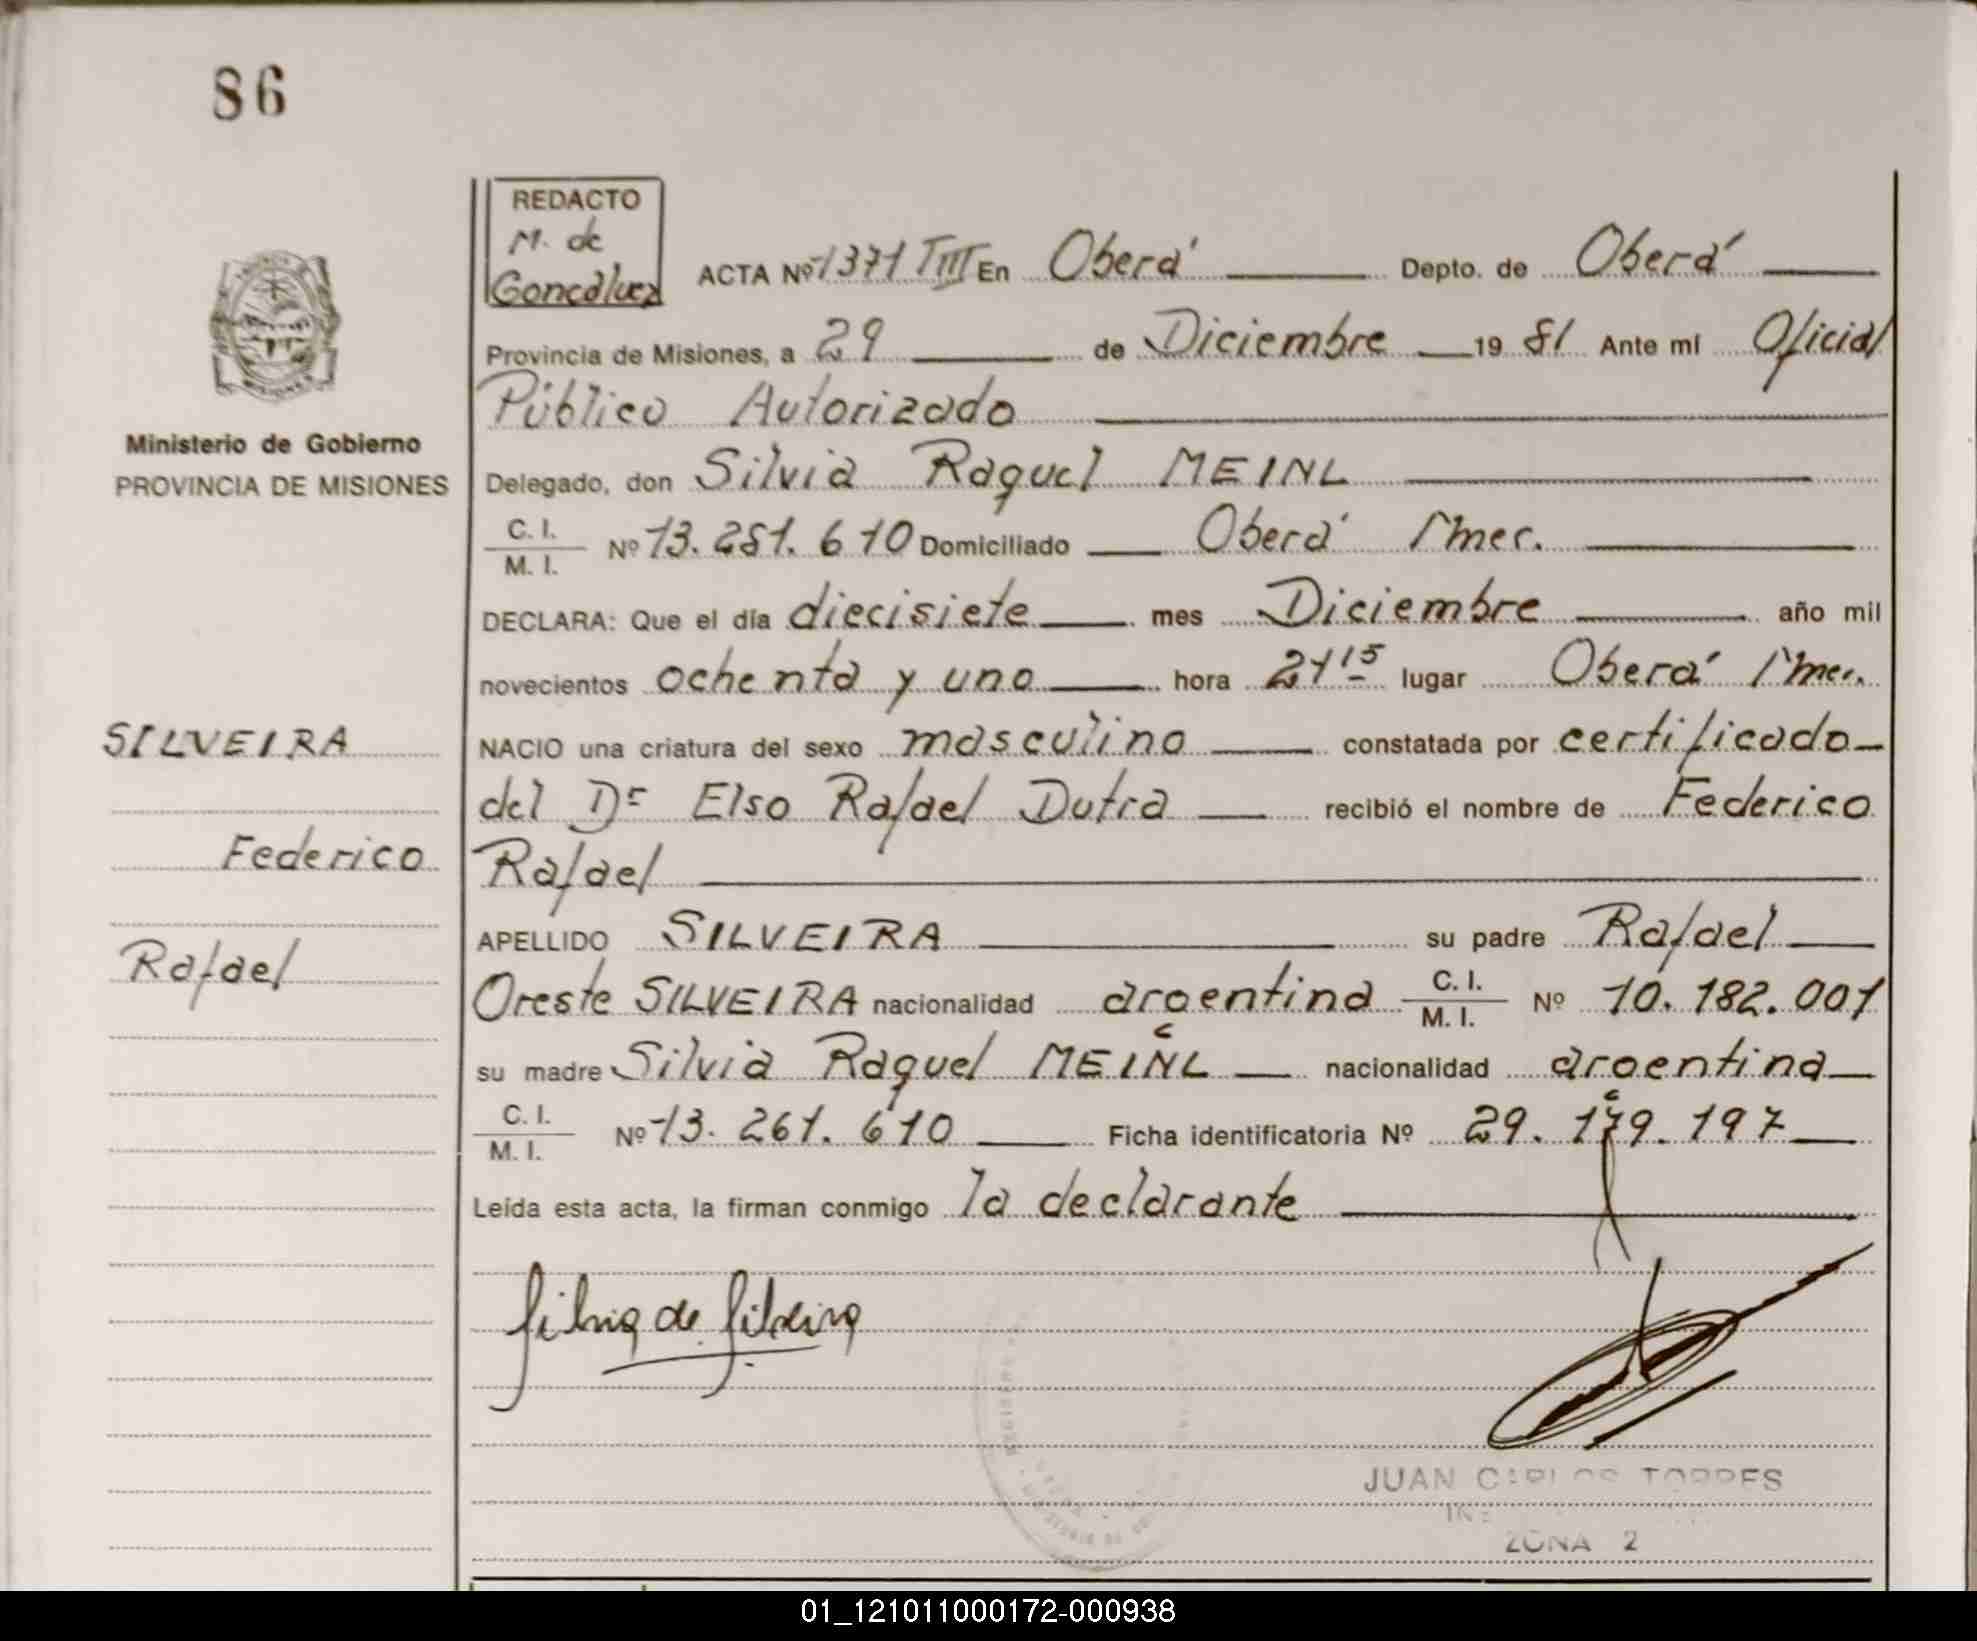 86
REDACTO
M. de
Goncalvez
ACTA Nº 1371 TIII En Oberá Depto. de Oberá
Provincia de Misiones, a 29 de Diciembre 19 81 Ante mí Oficial
Público Autorizado
Ministerio de Gobierno
PROVINCIA DE MISIONES
Delegado, don Silvia Raquel MEINL
C. I.
M. I.
Nº 13.281.610 Domiciliado Oberá
DECLARA: Que el día diecisiete mes Diciembre año mil
novecientos ochenta y uno hora 21 15 lugar Oberá
SILVEIRA
NACIO una criatura del sexo masculino constatada por certificado
del Dr Elso Rafael Dutra recibió el nombre de Federico
Federico
Rafael
APELLIDO SILVEIRA su padre Rafael
Rafael
Oreste SILVEIRA nacionalidad argentina C. I.
M. I.
Nº 10.182.001
su madre Silvia Raquel MEINL nacionalidad argentina
C. I.
M. I.
Nº 13.261.610 Ficha identificatoria Nº 29.179.197
Leída esta acta, la firman conmigo la declarante
Silvia de Silveira
JUAN CARLOS TORRES
ZONA 2
01_121011000172-000938